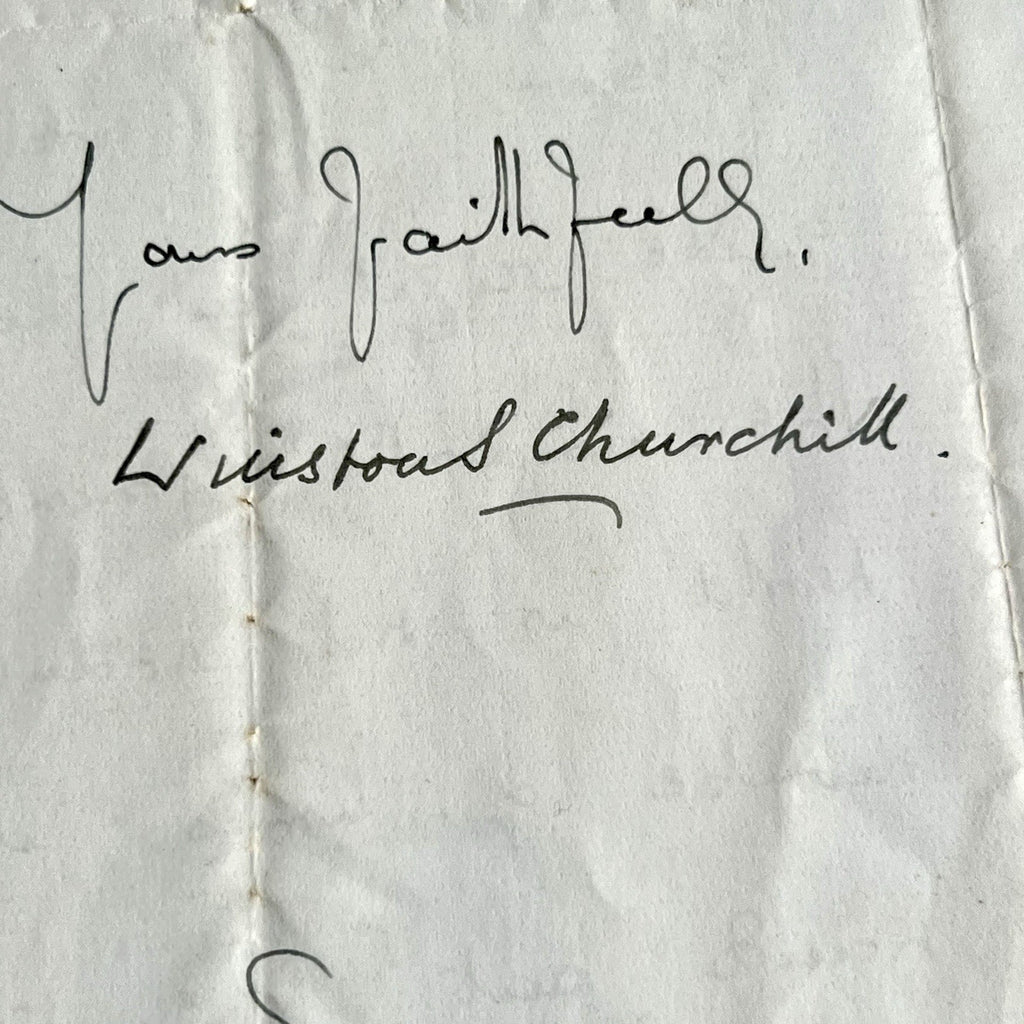 Yours faithfully.
Winston S Churchill.